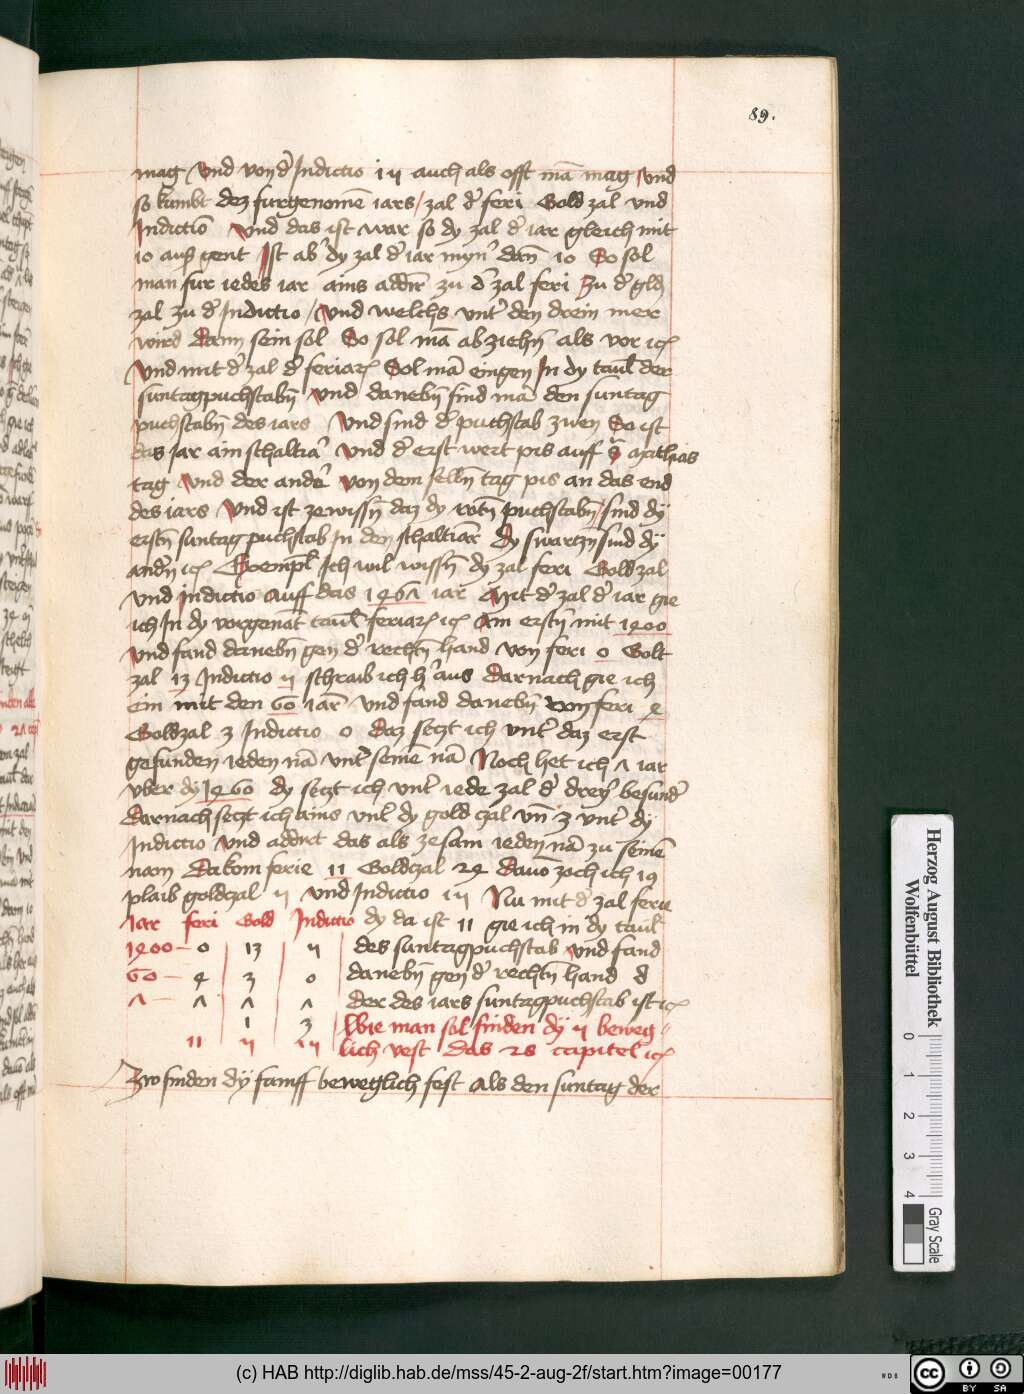 89.
mag Vnd von dˀ Indictio i ij auch als offt mā mag Vnd
so kumbt dez furgenomē iars / zal dˀ feri Gold zal vnd
Indictiō Vnd das ist war so dy zal dˀ iar gleich mit
10 auß gent Ist abˀ dy zal dˀ iar mynˀ dañ 10 So sol
man fur iedes iar ains addirˀ zu dˀ zal feri Zu dˀ gld
zal zu dˀ Indictio / Vnd welchs vntˀ den drein mer
wird dann sein sol So sol mā ab ziehn̄ als vor ⁊c
Vnd mit dˀ zal dˀ feriarꝫ Sol mā eingen In dy tauil der
suntagpuchstabn̄ Vnd danebn̄ find mā den suntag
puchstabn̄ des iars Vnd sind dˀ puchstab zwen So ist
das Jar ain schaltiaˀ Vnd dˀ erst wert pis auff S Mathias
tag Vnd der andˀ von dem selbn̄ tag pis an das end
des iars Vnd ist ze wissn̄ daz dy rotn̄ puchstabn̄ / sind dÿ
erstn̄ suntag puchstab In den schaltiarˀ Dy swartzn̄ sind dÿ
andˀn ⁊c Exempl̄ Ich wil wissn̄ dy zal feri Goldzal
Vnd Indictio Auff das 1461 iar Mit dˀ zal dˀ iar gie
ich In dy vorgenāt tauil feriarꝫ ⁊c Am erstn̄ mit 1400
Vnd fand danebn̄ gen dˀ rechtn̄ hand von feri 0 Golt
zal 13 Indictio ij schraib ich hˀaus Darnach gie ich
ein mit den 60 iarˀ Vnd fand danebn̄ von feri 4
Goldzal 3 Indictio 0 Daz setzt ich vntˀ daz erst
gefunden ieden nā vntˀ seinē nā Noch het ich 1 iar
vber dÿ 1460 dy setzt ich vntˀ iede zal dˀ dreyˀ besundˀ
Darnach setzt ich ains vntˀ dy gold zal vn̄ 3 vntˀ dy
Indictio Vnd addirt das als zesam ieden nā zu seinē
nam Da kom ferie 11 Goldzal 24 Dauō zoch ich 19
plaib goldzal ij Vnd Indictio i ij Nu mit dˀ zal ferie
Iar feri Gold Indictio dy da ist 11 gie ich in dy tauil
1400 — 0 13 ij des suntagpuchstab Vnd fand
60 — 4 3 0 danebn̄ gen dˀ rechtn̄ hand d
1 — 1 1 1 der des iars suntagpuchstab ist ⁊c
1 3 Wie man sol finden dÿ ij beweg
11 ij i ij lich vest das 28 capitel ⁊c
Zw finden dÿ fumff beweglich fest Als den suntag der
Herzog August Bibliothek
Wolfenbüttel
0 1 2 3 4
Gray Scale
(c) HAB http://diglib.hab.de/mss/45-2-aug-2f/start.htm?image=00177
cc BY SA